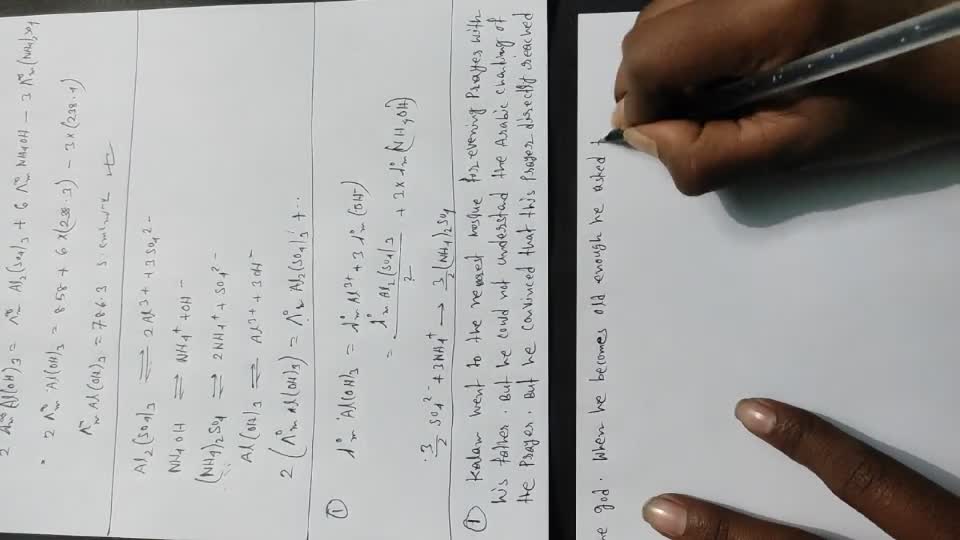 2 Λ°m Al(OH)3 = Λ°m Al2(SO4)3 + 6 Λ°m NH4OH - 3 Λ°m (NH4)2SO4
2 Λ°m Al(OH)3 = 858 + 6×(238.3) - 3×(238.4)
Λ°m Al(OH)3 = 786.3 S
Al2(SO4)3 ⇌ 2Al3+ + 3SO42-
NH4OH ⇌ NH4+ + OH-
(NH4)2SO4 ⇌ 2NH4+ + SO42-
Al(OH)3 ⇌ Al3+ + 3OH-
2 (Λ°m Al(OH)3) = Λ°m Al2(SO4)3 + ..
① λ°m Al(OH)3 = λ°m Al3+ + 3 λ°m (OH-)
= λ°m Al2(SO4)3 / 2 + 3 × λ°m (NH4OH)
3/2 SO42- + 3NH4+ → 3/2 (NH4)2SO4
① Kalam went to the nearest mosque for evening Prayer with
his father. But he could not understand the Arabic chating of
the Prayer. But he convinced that this Prayer directly reached
he god. When he becomes old enough he asked